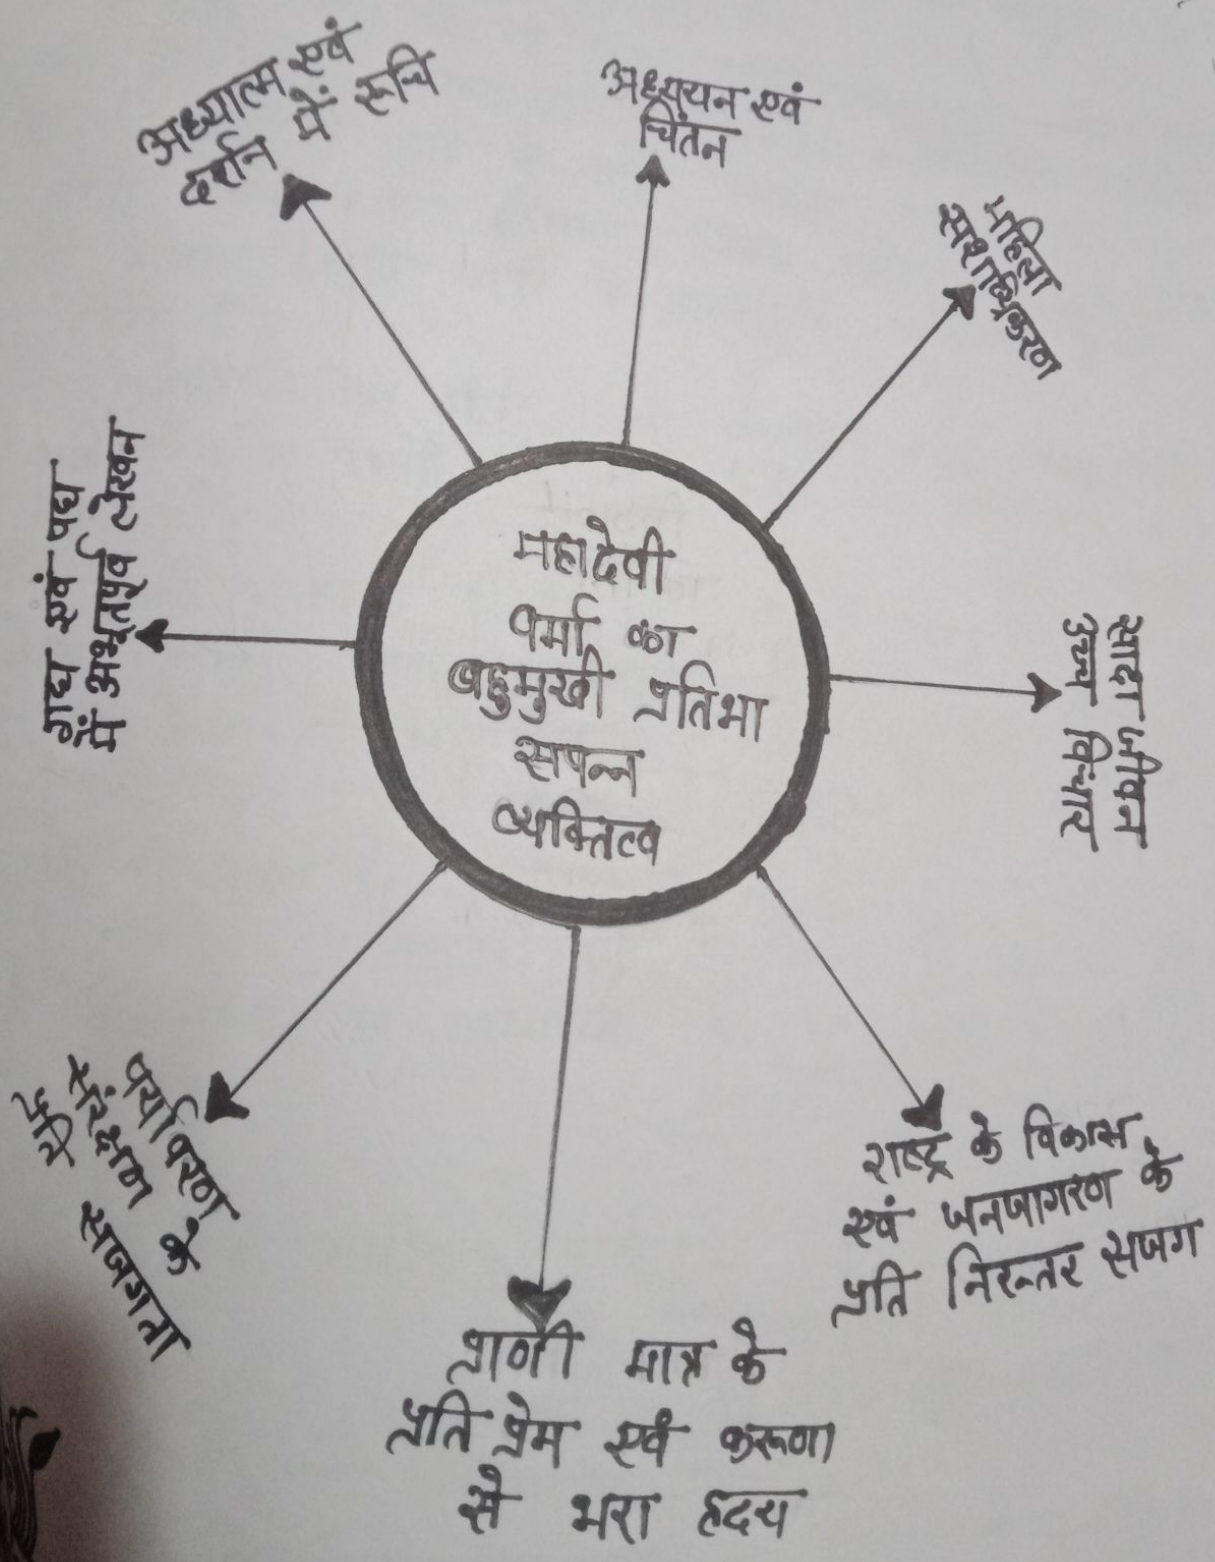 महादेवी
वर्मा का
बहुमुखी प्रतिभा
सपन्न
व्यक्तित्व
अध्ययन एवं
चिंतन
महिला
सशक्तिकरण
सादा जीवन
उच्च विचार
राष्ट्र के विकास
एवं जनजागरण के
प्रति निरन्तर सजग
प्राणी मात्र के
प्रति प्रेम एवं करूणा
से भरा हृदय
पर्यावरण
संरक्षण के
प्रति सजगता
गद्य एवं पद्य
में अभूतपूर्व लेखन
अध्यात्म एवं
दर्शन में रूचि